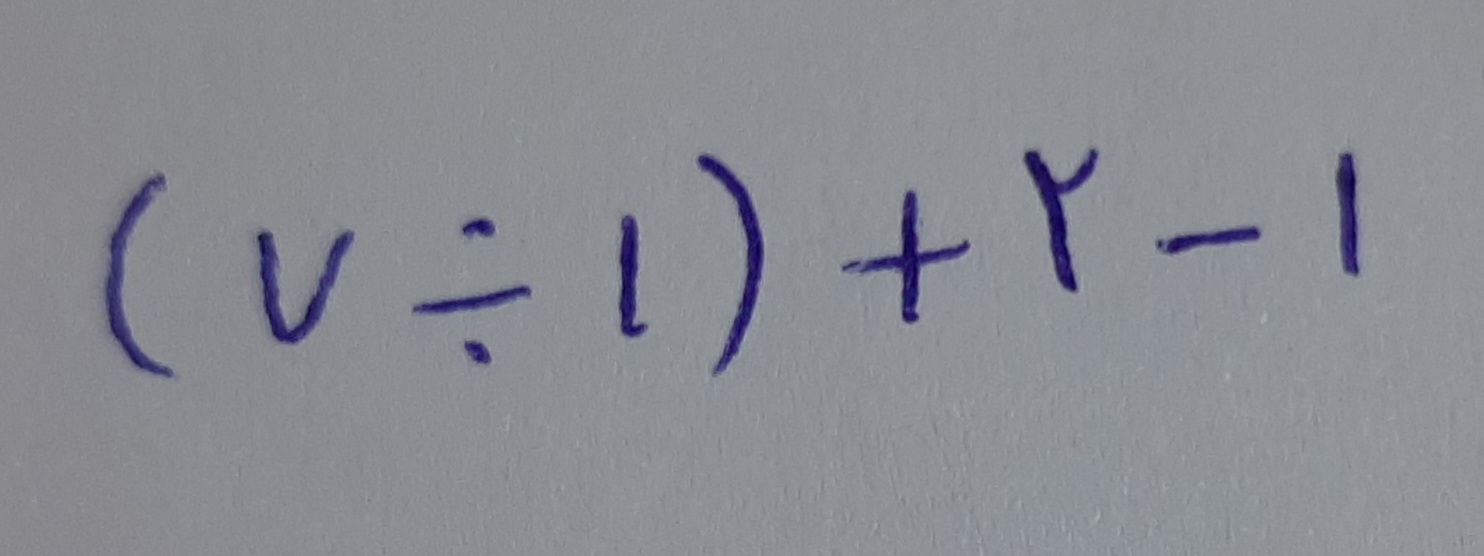 (۷ ÷ ۱) + ۲ - ۱